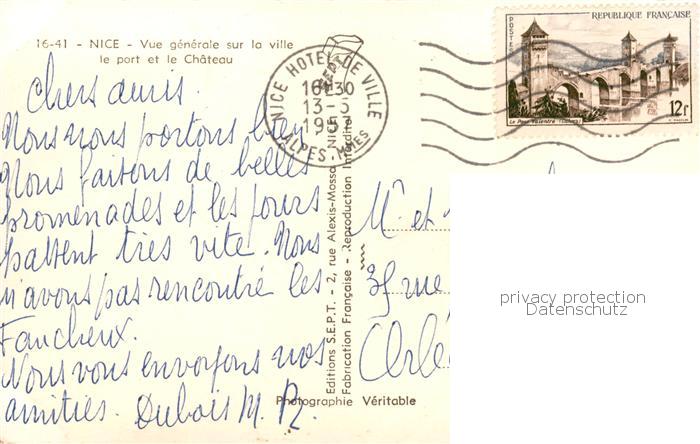 16-41 - NICE - Vue générale sur la ville
le port et le Château
chers amis.
Nous nous portons bien
Nous faisons de belles
promenades et les jours
passent très vite. Nous
n'avons pas rencontré les
Faucheux.
Nous vous envoyons nos
amitiés. Dubois M. R.
NICE HOTEL DE VILLE
16H30
13-5
ALPES-MMES
Editions S.E.P.T. - 2, rue Alexis-Mossa - NICE
Fabrication Française - Reproduction Interdite
Photographie Véritable
POSTES
REPUBLIQUE FRANÇAISE
Le Pont Valentré (Cahors)
12F
Mr et
35 rue
privacy protection
Datenschutz